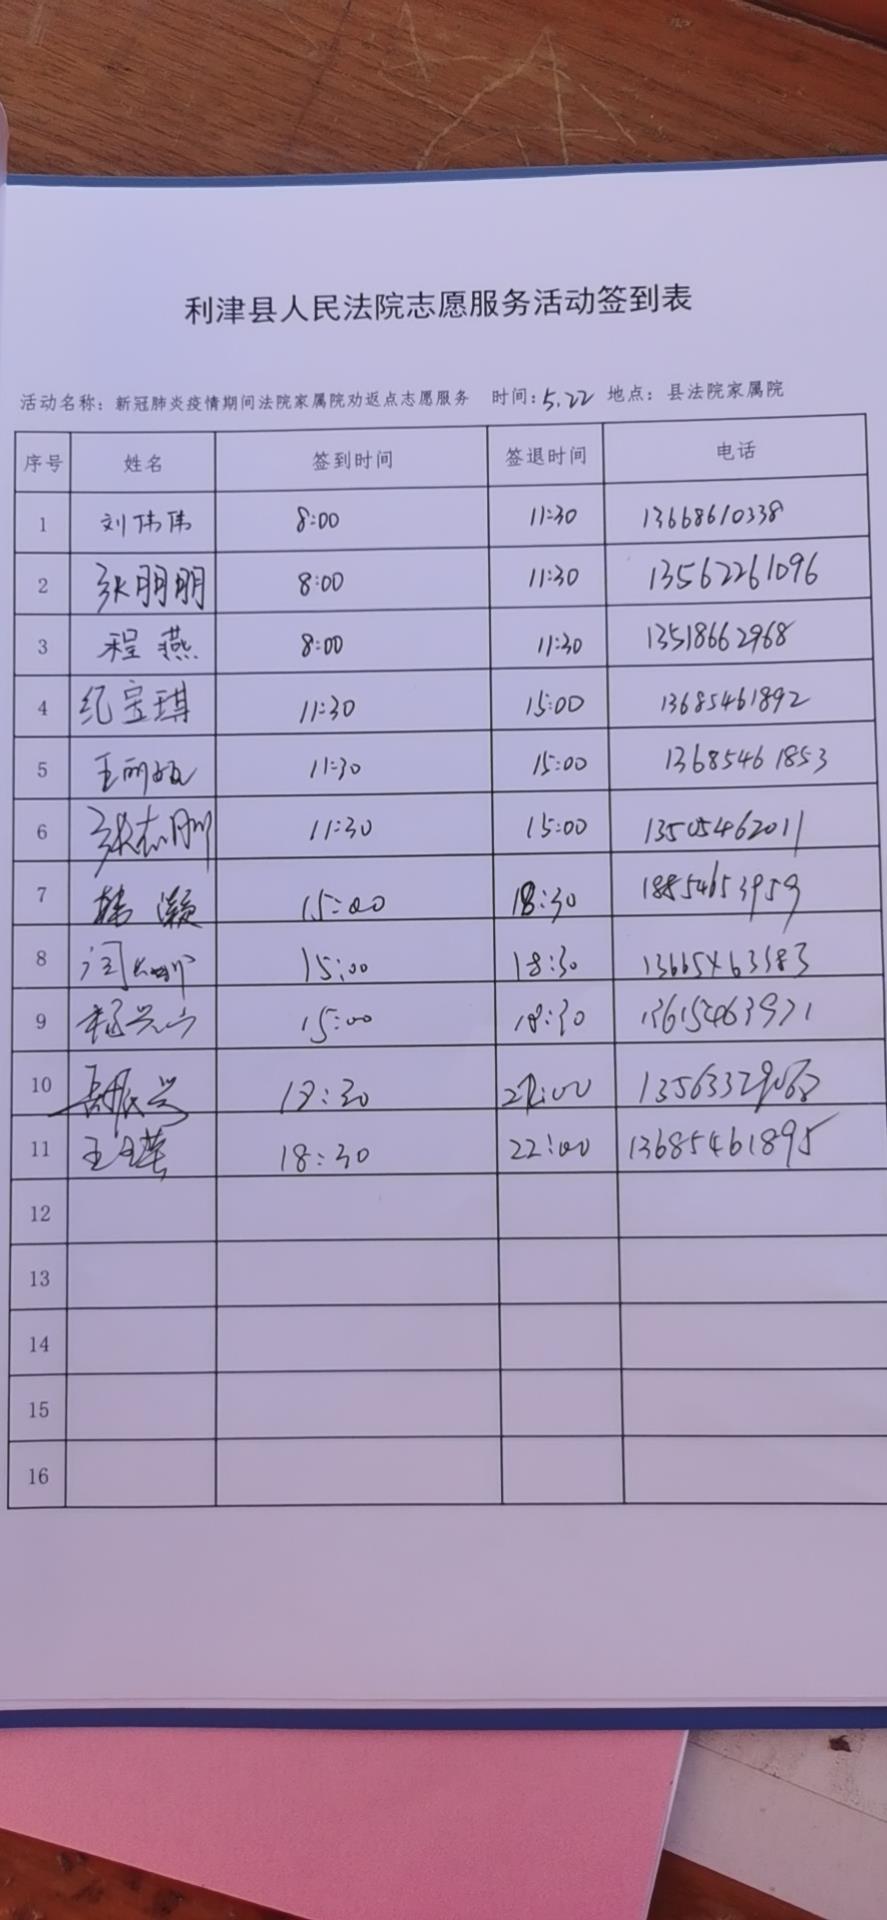 利津县人民法院志愿服务活动签到表
活动名称：新冠肺炎疫情期间法院家属院劝返点志愿服务 时间：5.22 地点：县法院家属院
序号 姓名 签到时间 签退时间 电话
1 刘伟伟 8:00 11:30 13668610338
2 张朋朋 8:00 11:30 13562261096
3 程燕 8:00 11:30 13518662968
4 纪宝琪 11:30 15:00 13685461892
5 王丽 11:30 15:00 13685461853
6 张志刚 11:30 15:00 13505462011
7 韩灏 15:00 18:30 18854653959
8 闫 15:00 18:30 13665463583
9 杨兴 15:00 18:30 13615463971
10 振兴 18:30 22:00
11 王 18:30 22:00 13685461895
12
13
14
15
16